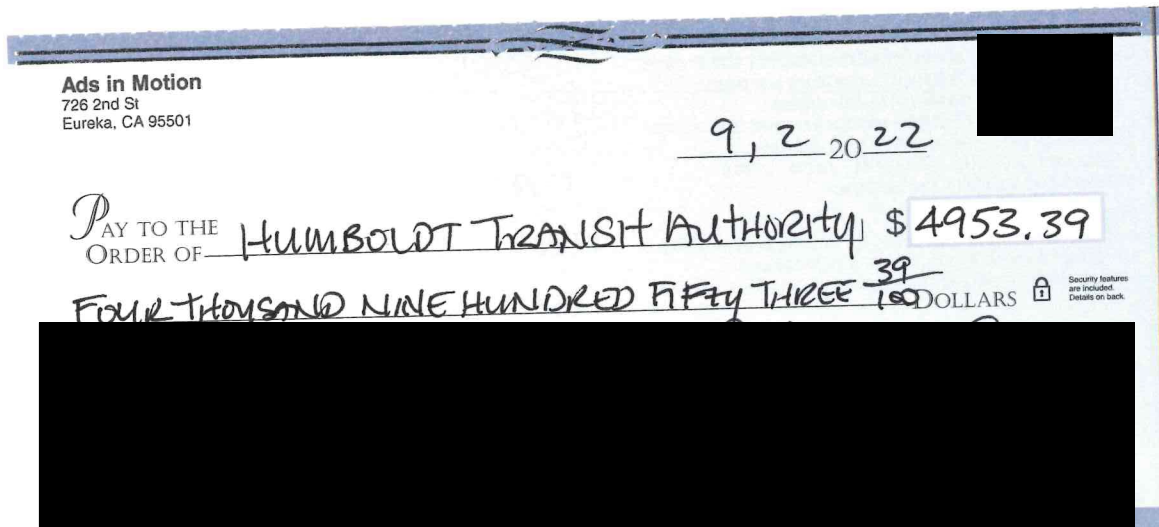 Ads in Motion
726 2nd St
Eureka, CA 95501
9, 2 20 22
PAY TO THE
ORDER OF HUMBOLDT TRANSIT AUTHORITY $ 4953.39
FOUR THOUSAND NINE HUNDRED FIFTY THREE 39/100 DOLLARS
Security features
are included.
Details on back.